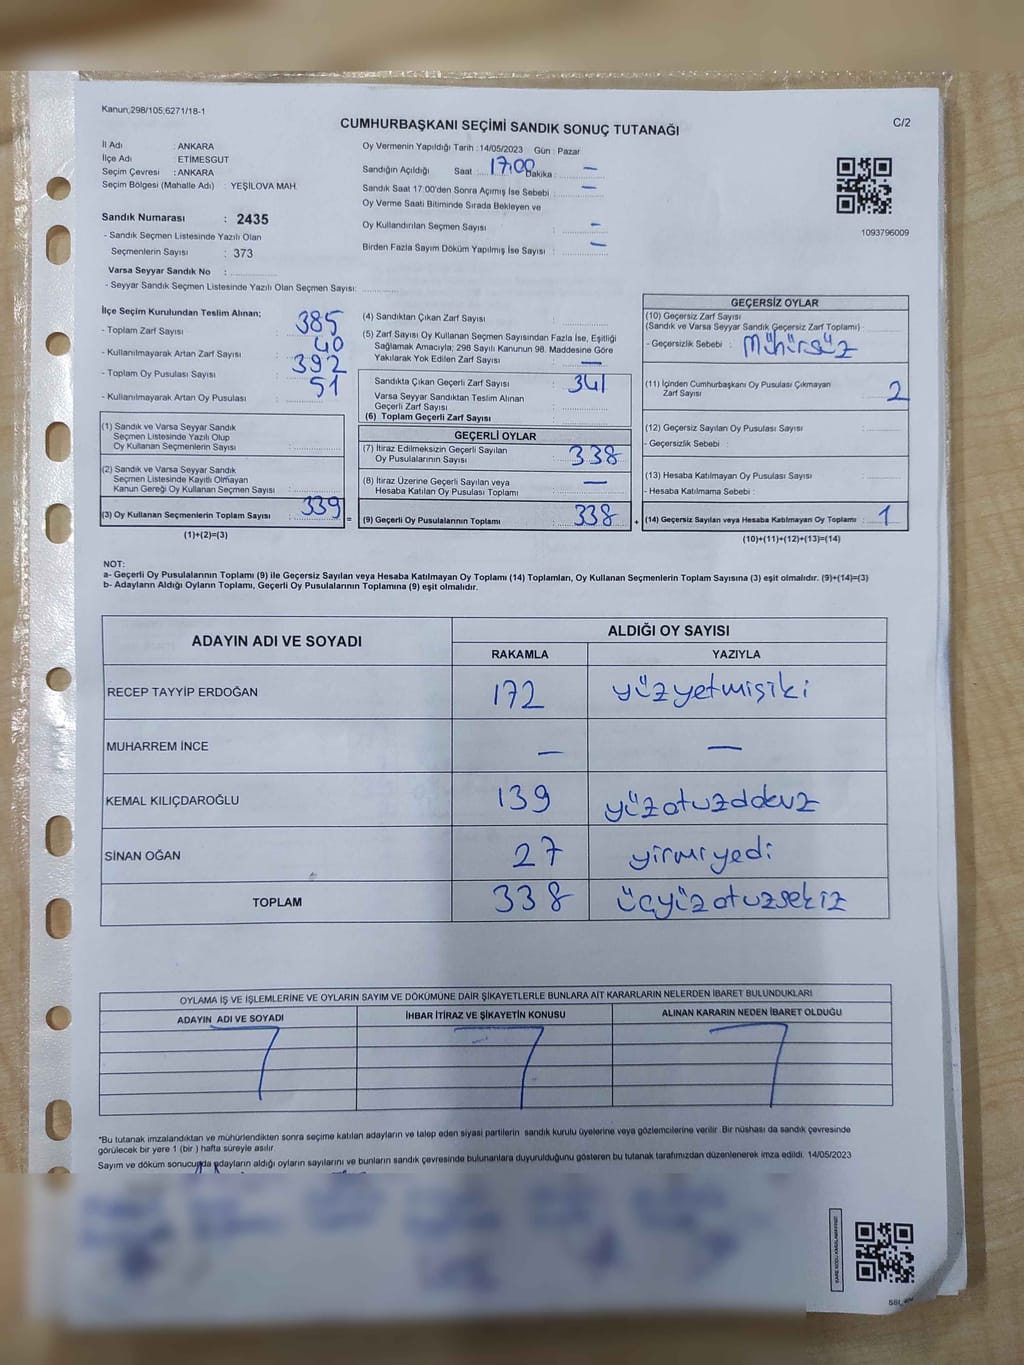 Kanun;298/105;6271/18-1
C/2
CUMHURBAŞKANI SEÇİMİ SANDIK SONUÇ TUTANAĞI
İl Adı : ANKARA
İlçe Adı : ETİMESGUT
Seçim Çevresi : ANKARA
Seçim Bölgesi (Mahalle Adı) : YEŞİLOVA MAH.
Sandık Numarası : 2435
- Sandık Seçmen Listesinde Yazılı Olan
Seçmenlerin Sayısı : 373
Varsa Seyyar Sandık No :
- Seyyar Sandık Seçmen Listesinde Yazılı Olan Seçmen Sayısı:
Oy Vermenin Yapıldığı Tarih : 14/05/2023 Gün : Pazar
Sandığın Açıldığı Saat : 17:00 Dakika : —
Sandık Saat 17.00'den Sonra Açımış İse Sebebi : —
Oy Verme Saati Bitiminde Sırada Bekleyen ve
Oy Kullandırılan Seçmen Sayısı : —
Birden Fazla Sayım Döküm Yapılmış İse Sayısı : —
1093796009
İlçe Seçim Kurulundan Teslim Alınan;
- Toplam Zarf Sayısı : 385
- Kullanılmayarak Artan Zarf Sayısı : 40
- Toplam Oy Pusulası Sayısı : 392
- Kullanılmayarak Artan Oy Pusulası : 51
(1) Sandık ve Varsa Seyyar Sandık
Seçmen Listesinde Yazılı Olup
Oy Kullanan Seçmenlerin Sayısı :
(2) Sandık ve Varsa Seyyar Sandık
Seçmen Listesinde Kayıtlı Olmayan
Kanun Gereği Oy Kullanan Seçmen Sayısı :
(3) Oy Kullanan Seçmenlerin Toplam Sayısı : 339
(1)+(2)=(3)
(4) Sandıktan Çıkan Zarf Sayısı :
(5) Zarf Sayısı Oy Kullanan Seçmen Sayısından Fazla İse, Eşitliği
Sağlamak Amacıyla; 298 Sayılı Kanunun 98. Maddesine Göre
Yakılarak Yok Edilen Zarf Sayısı : —
Sandıkta Çıkan Geçerli Zarf Sayısı : 341
Varsa Seyyar Sandıktan Teslim Alınan
Geçerli Zarf Sayısı :
(6) Toplam Geçerli Zarf Sayısı
GEÇERLİ OYLAR
(7) İtiraz Edilmeksizin Geçerli Sayılan
Oy Pusulalarının Sayısı : 338
(8) İtiraz Üzerine Geçerli Sayılan veya
Hesaba Katılan Oy Pusulası Toplamı : —
= (9) Geçerli Oy Pusulalarının Toplamı : 338
GEÇERSİZ OYLAR
(10) Geçersiz Zarf Sayısı
(Sandık ve Varsa Seyyar Sandık Geçersiz Zarf Toplamı) :
- Geçersizlik Sebebi : Mühürsüz
(11) İçinden Cumhurbaşkanı Oy Pusulası Çıkmayan
Zarf Sayısı : 2
(12) Geçersiz Sayılan Oy Pusulası Sayısı :
- Geçersizlik Sebebi :
(13) Hesaba Katılmayan Oy Pusulası Sayısı :
- Hesaba Katılmama Sebebi :
+ (14) Geçersiz Sayılan veya Hesaba Katılmayan Oy Toplamı : 1
(10)+(11)+(12)+(13)=(14)
NOT:
a- Geçerli Oy Pusulalarının Toplamı (9) ile Geçersiz Sayılan veya Hesaba Katılmayan Oy Toplamı (14) Toplamları, Oy Kullanan Seçmenlerin Toplam Sayısına (3) eşit olmalıdır. (9)+(14)=(3)
b- Adayların Aldığı Oyların Toplamı, Geçerli Oy Pusulalarının Toplamına (9) eşit olmalıdır.
ADAYIN ADI VE SOYADI
ALDIĞI OY SAYISI
RAKAMLA YAZIYLA
RECEP TAYYİP ERDOĞAN 172 yüzyetmişiki
MUHARREM İNCE — —
KEMAL KILIÇDAROĞLU 139 yüzotuzdokuz
SİNAN OĞAN 27 yirmiyedi
TOPLAM 338 üçyüzotuzsekiz
OYLAMA İŞ VE İŞLEMLERİNE VE OYLARIN SAYIM VE DÖKÜMÜNE DAİR ŞİKAYETLERLE BUNLARA AİT KARARLARIN NELERDEN İBARET BULUNDUKLARI
ADAYIN ADI VE SOYADI İHBAR İTİRAZ VE ŞİKAYETİN KONUSU ALINAN KARARIN NEDEN İBARET OLDUĞU
*Bu tutanak imzalandıktan ve mühürlendikten sonra seçime katılan adayların ve talep eden siyasi partilerin sandık kurulu üyelerine veya gözlemcilerine verilir. Bir nüshası da sandık çevresinde
görülecek bir yere 1 (bir ) hafta süreyle asılır.
Sayım ve döküm sonucunda adayların aldığı oyların sayılarını ve bunların sandık çevresinde bulunanlara duyurulduğunu gösteren bu tutanak tarafımızdan düzenlenerek imza edildi. 14/05/2023